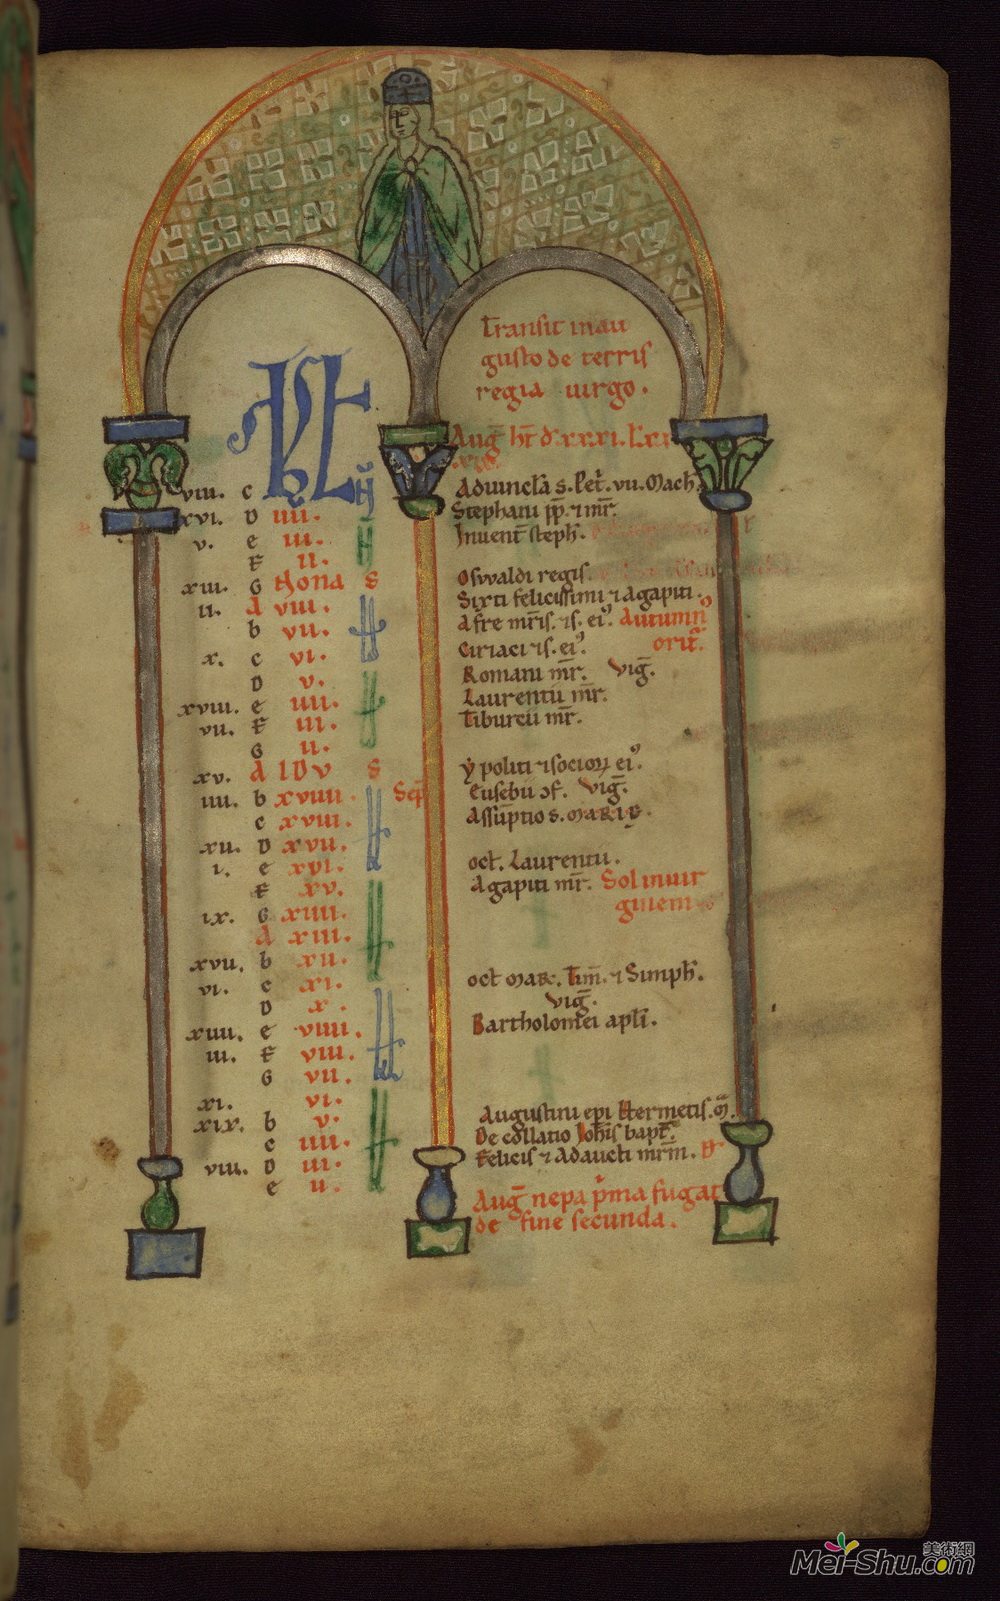 KL
Transit in au
gusto de terris
regia uirgo.
Aug̅ ht̅ d. xxxi. l. xx
viii. c Aduincla s. Pet. vii. Mach.
xvi. D iiii. Stephani pp. ⁊ mr̅.
v. e iii. Inuent̅ steph̅.
F ii.
xiii. G Nona s Oswaldi regis.
ii. A viii. Sixti felicissimi ⁊ Agapiti.
b vii. Afre mr̅is. ⁊ s. ei⁹. Autumn⁹
x. c vi. Ciriaci ⁊ s. ei⁹. orit̅.
D v. Romani mr̅. vig̅.
xviii. e iiii. Laurentii mr̅.
vii. F iii. Tiburcii mr̅.
G ii.
xv. A IDV s ypoliti ⁊ socioꝝ ei⁹.
iiii. b xviiii. Sep̅ Eusebii ɔf. vig̅.
c xviii. Assu̅ptio s. MARIE.
xii. D xvii.
i. e xvi. oct. Laurentii.
F xv. Agapiti mr̅. Sol in uir
ix. G xiiii. ginem
A xiii.
xvii. b xii.
vi. c xi. oct MAR. Tim̅. ⁊ Simph̅.
D x. vig̅.
xiiii. e viiii. Bartholomei apli̅.
iii. F viii.
G vii.
xi. vi.
xix. b v. Augustini epi Hermetis.
c iiii. De collatio Joh̅is bapt̅.
viii. D iii. Felicis ⁊ Adaucti mr̅m.
e ii.
Aug̅ nepa p̅ma fugat
de fine secunda.
Mei-Shu.com
美術網